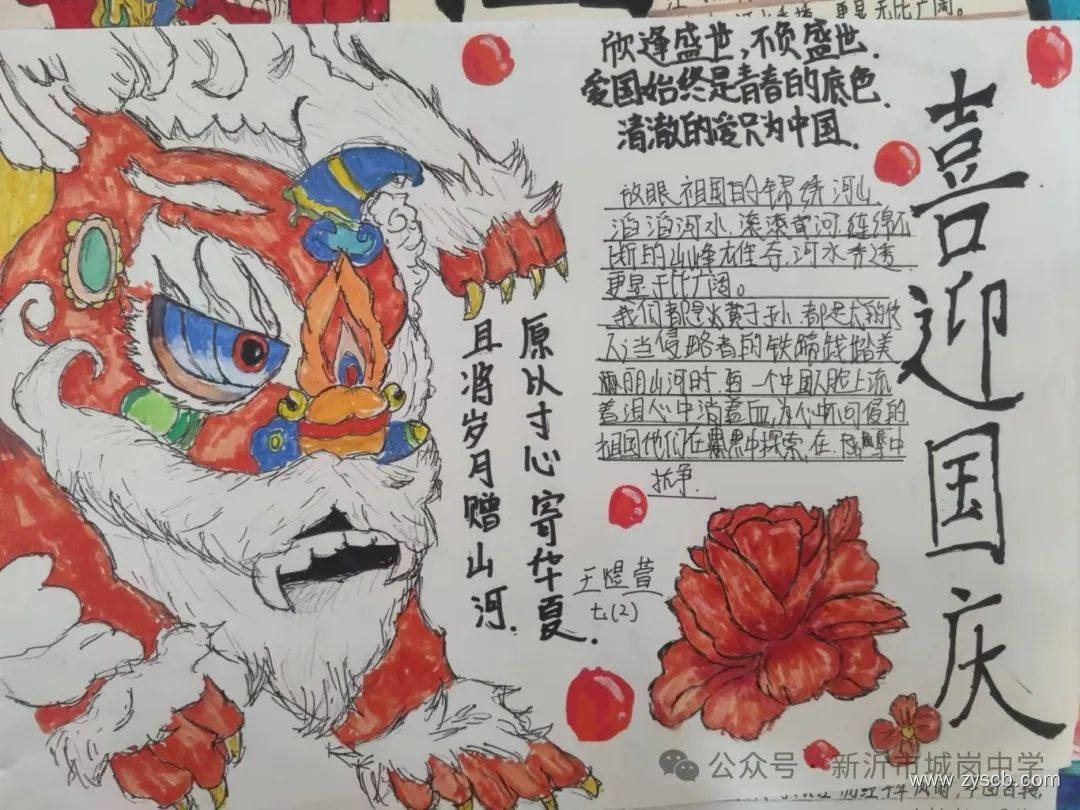 更显无比广阔。
欣逢盛世,不负盛世.
爱国始终是青春的底色.
清澈的爱只为中国.
喜迎国庆
放眼祖国的锦绣河山
滔滔河水、滚滚黄河、连绵不
断的山峰雄奇、河水秀透
更显无比广阔。
我们都是炎黄子孙,都是龙的传
人,当侵略者的铁蹄践踏美
丽的山河时,每一个中国人脸上流
着泪心中淌着血,为心中不可侵的
祖国他们在黑暗中探索,在中
抗争.
原以寸心寄华夏.
且将岁月赠山河.
王煜萱
七(2)
公众号
新沂市城岗中学
www.zyscb.com